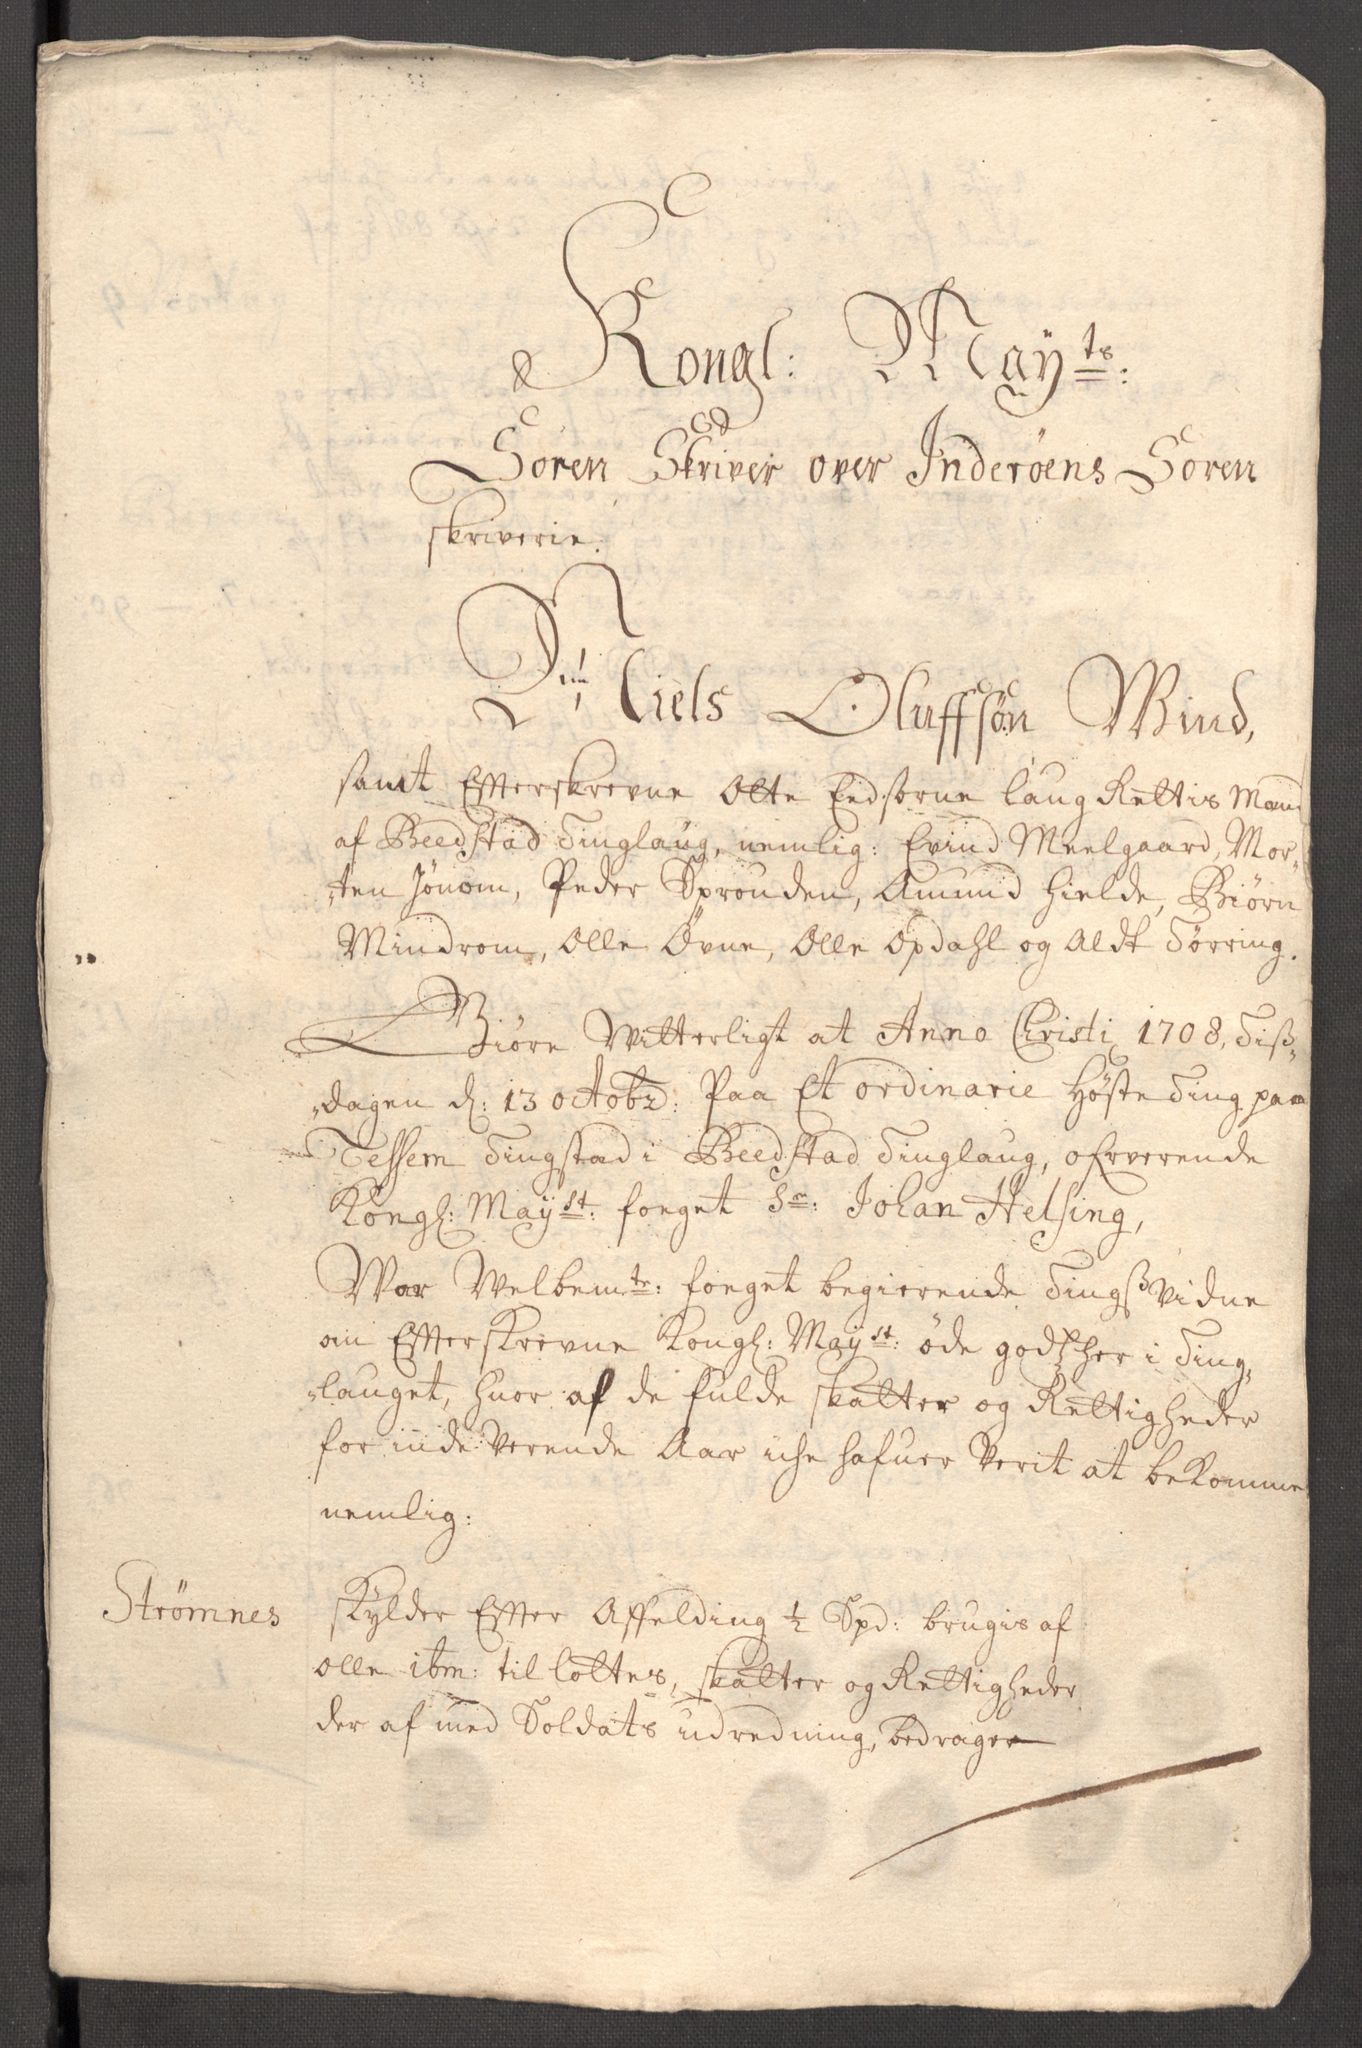 Kongl: Maÿts:
Soren Skriver over Inderöens Soren
skriverie.
Niels Oluffsön Wind,
samt Effterskrevne Otte Eedsorne laug Rettis Mænd
af Beedstad Tinglaug, nemlig: Evind Meelgaard, Mor-
-ten Jönom, Peder Sprouden, Amund Hielde, Biörn
Mindrom, Olle Övne, Olle Opdahl og Aldt Törring.
Giöre Witterligt at Anno Christi 1708, Tiß-
-dagen d: 13 octobr: Paa Et ordinarie Höste Ting paa
Tessem Tingstad i Beedstad Tinglaug, ofververende
Kongl: Maÿst: foeget Sr: Johan Helsing,
War Welbemte: foeget begierende Tingß Vidne
om Effterskrevne Kongl: Maÿst: öde godtz her i Ting-
-lauget, huor af de fulde skatter og Rettigheder
for inde Verende Aar iche hafuer Verit at bekomme
nemlig:
Strömnes skÿlder Effter Affelding 1/2 Spd: brugis af
olle ibm: til lottes, skatter og Rettigheder
der af med Soldats udredning, bedrager